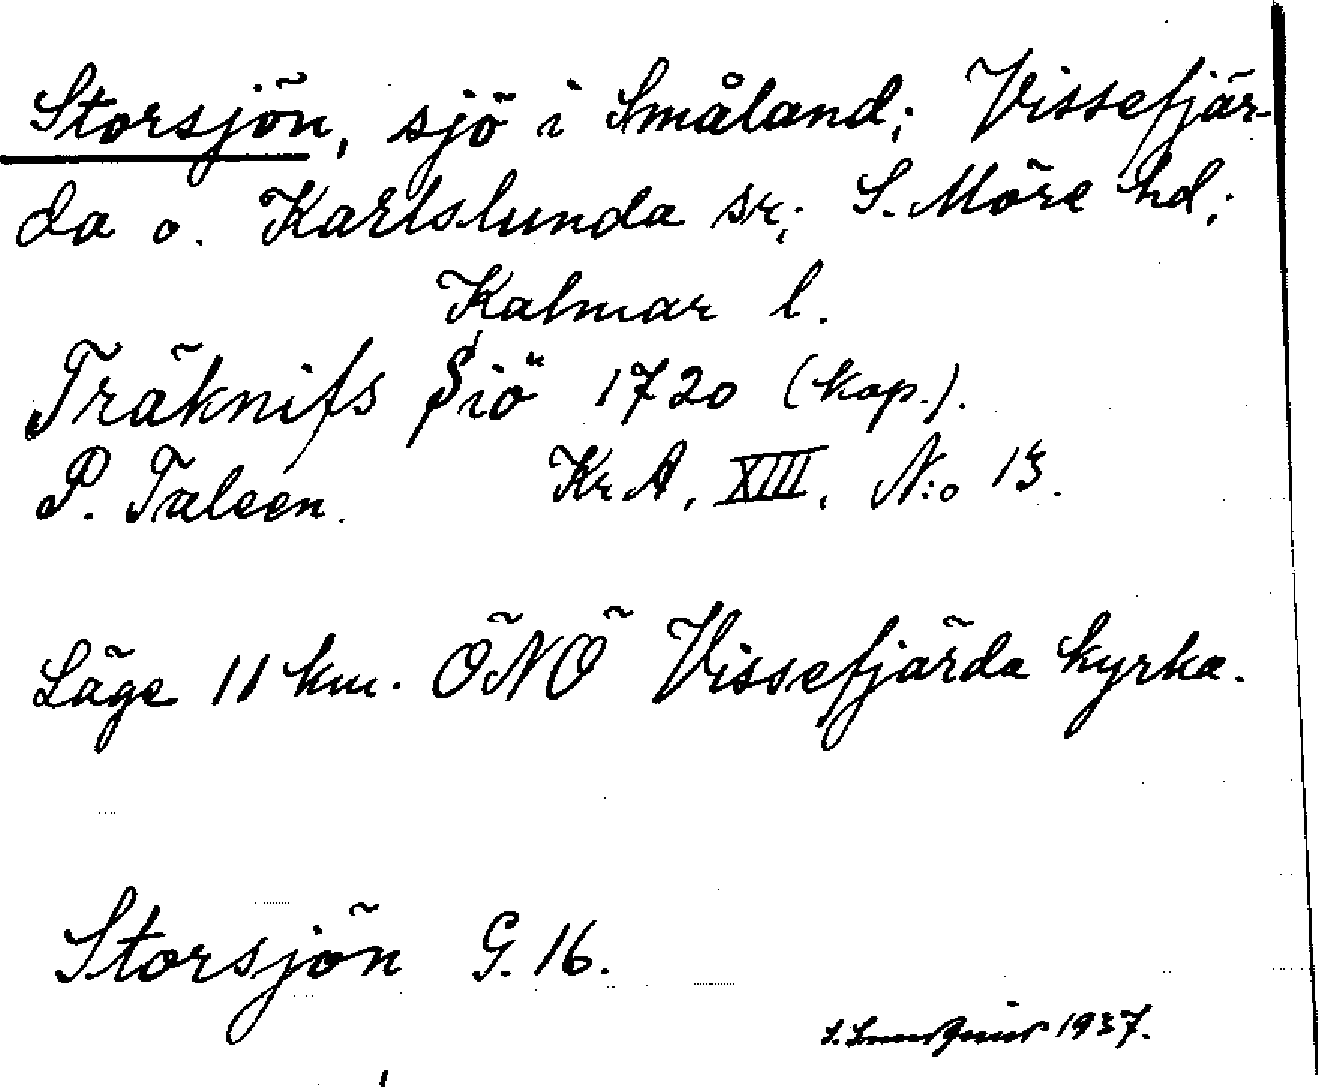 Storsjön, sjö i Småland; Vissefjär-
da o. Karlslunda sr; S. Möre hd;
Kalmar l.
Träknifs Siö 1720 (kop.).
P. Taleen. Kr A, XIII, N:o 13.
Läge 11 km. ÖNÖ Vissefjärda kyrka.
Storsjön G. 16.
1937.